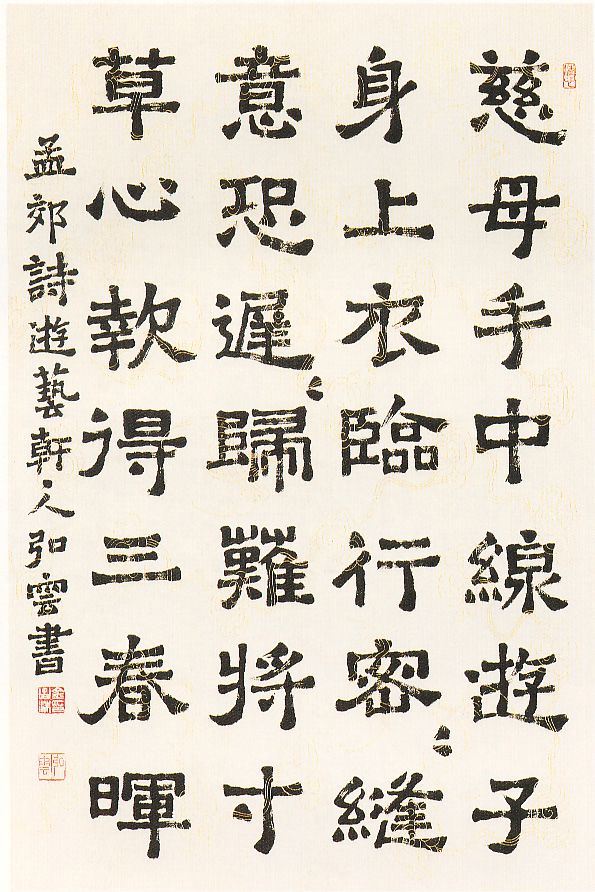 慈母手中線遊子
身上衣臨行密〻縫
意恐遲〻歸難將寸
草心報得三春暉
孟郊詩遊藝軒人弘雲書